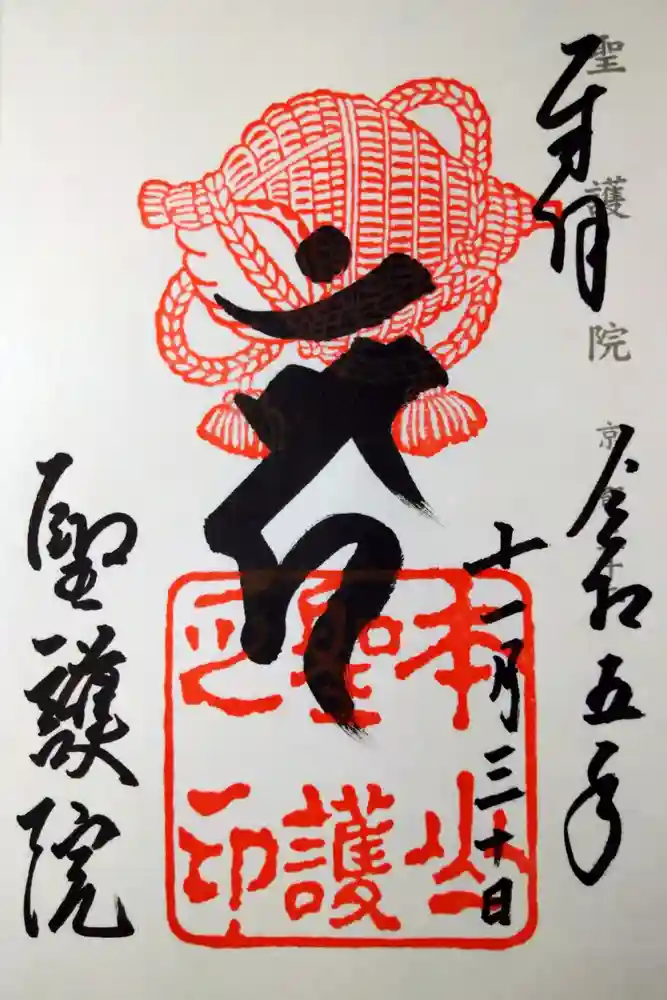 聖護院 京
奉拝
令和五年
十一月三十日
本山
聖護
之印
聖護院